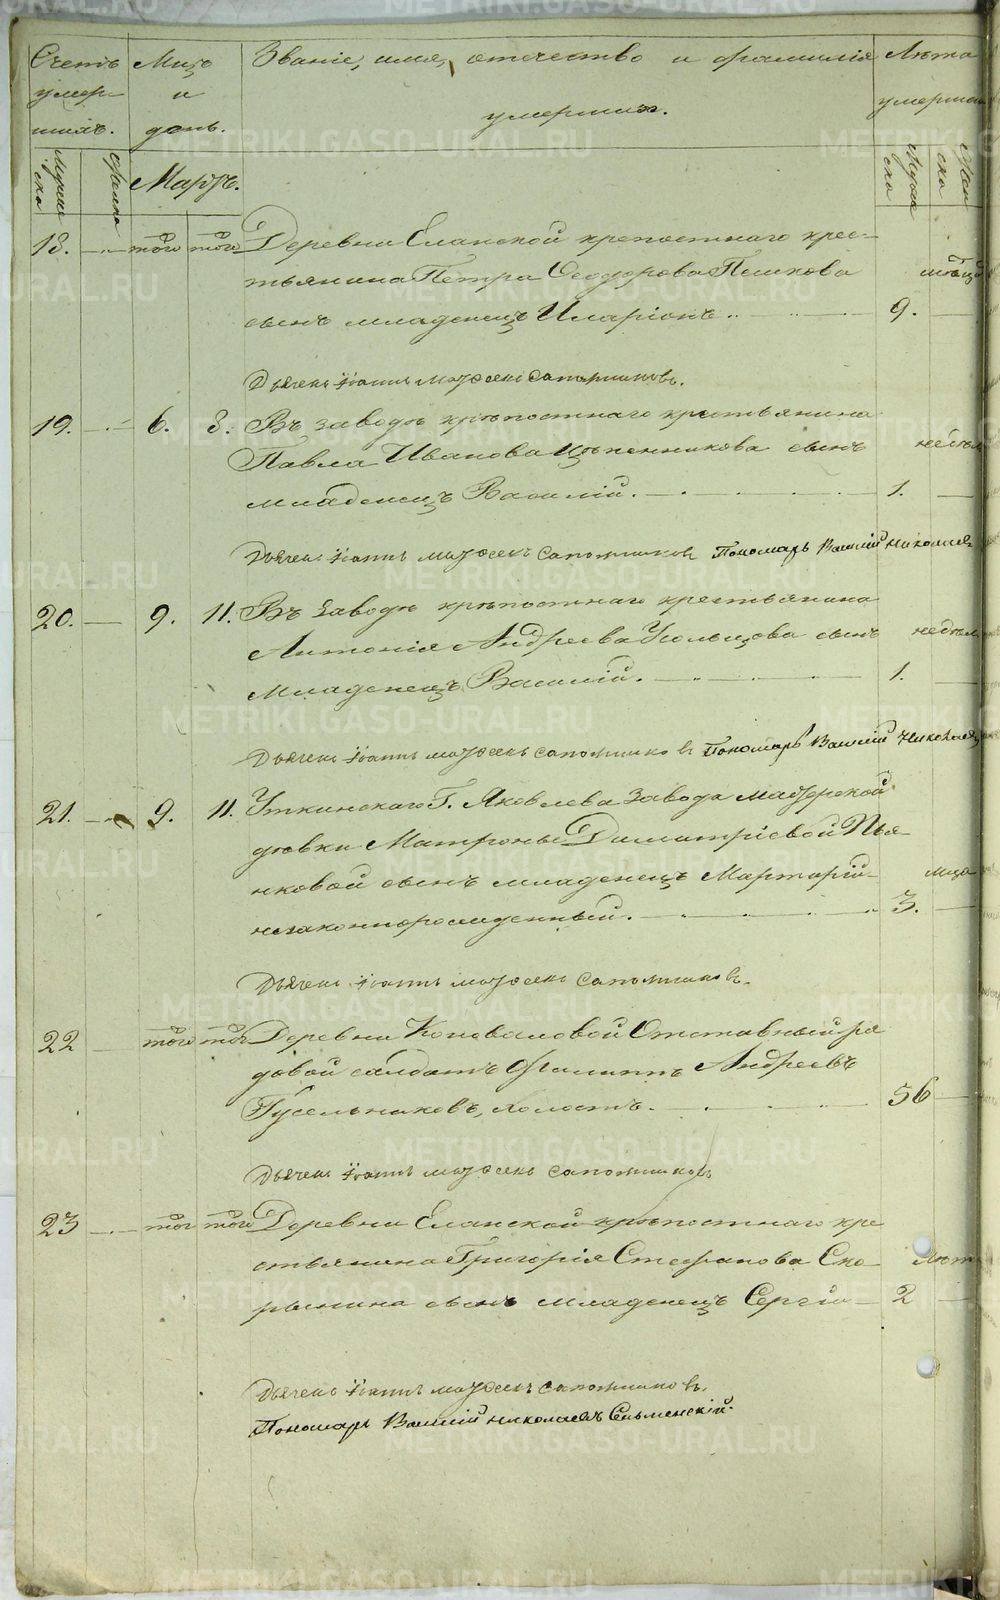 Счетъ умер- шихъ.
Мѣсц. и день.
Званіе, имя, отечество и фамилія умершихъ.
Лѣта умерших
Муже ска
Женска
Мартъ.
Муже ска
Жен ска
18. — того того Деревни Еланской крепостнаго крес-
тьянина Петра Ѳеодорова Пешкова мѣсяц
сынъ младенецъ Иларіонъ. — 9. —
Дьячекъ Іоаннъ Матѳеевъ Сапожниковъ.
19. — 6. 8. Въ заводѣ крѣпостнаго крестьянина
Павла Иванова Цѣпенникова сынъ недѣл
младенецъ Василій. — 1. —
Дьячекъ Іоаннъ Матѳеевъ Сапожниковъ Пономарь Василій Николаев
20. — 9. 11. Въ заводѣ крѣпостнаго крестьянина
Антонія Андреева Усольцова сынъ недѣл
младенецъ Василій. — 1. —
Дьячекъ Іоаннъ Матѳеевъ Сапожниковъ Пономарь Василій Николаев
21. — 9. 11. Уткинскаго Г. Яковлева завода мастерской
дѣвки Матроны Димитріевой Пья-
нковой сынъ младенецъ Мартирій мѣсц
незаконнорожденный. — 3. —
Дьячекъ Іоаннъ Матѳеевъ Сапожниковъ.
22 — того того Деревни Коноваловой Отставный ря
довой салдатъ Филиппъ Андреевъ
Гусельниковъ, холостъ. — 56 —
Дьячекъ Іоаннъ Матѳеевъ Сапожниковъ
23 — того того Деревни Еланской крѣпостнаго кре
стьянина Григорія Стефанова Ско- Лѣт
рынина сынъ младенецъ Сергій — 2 —
Дьячекъ Іоаннъ Матѳеевъ Сапожниковъ.
Пономарь Василій Николаевъ Сельменскій.
METRIKI.GASO-URAL.RU